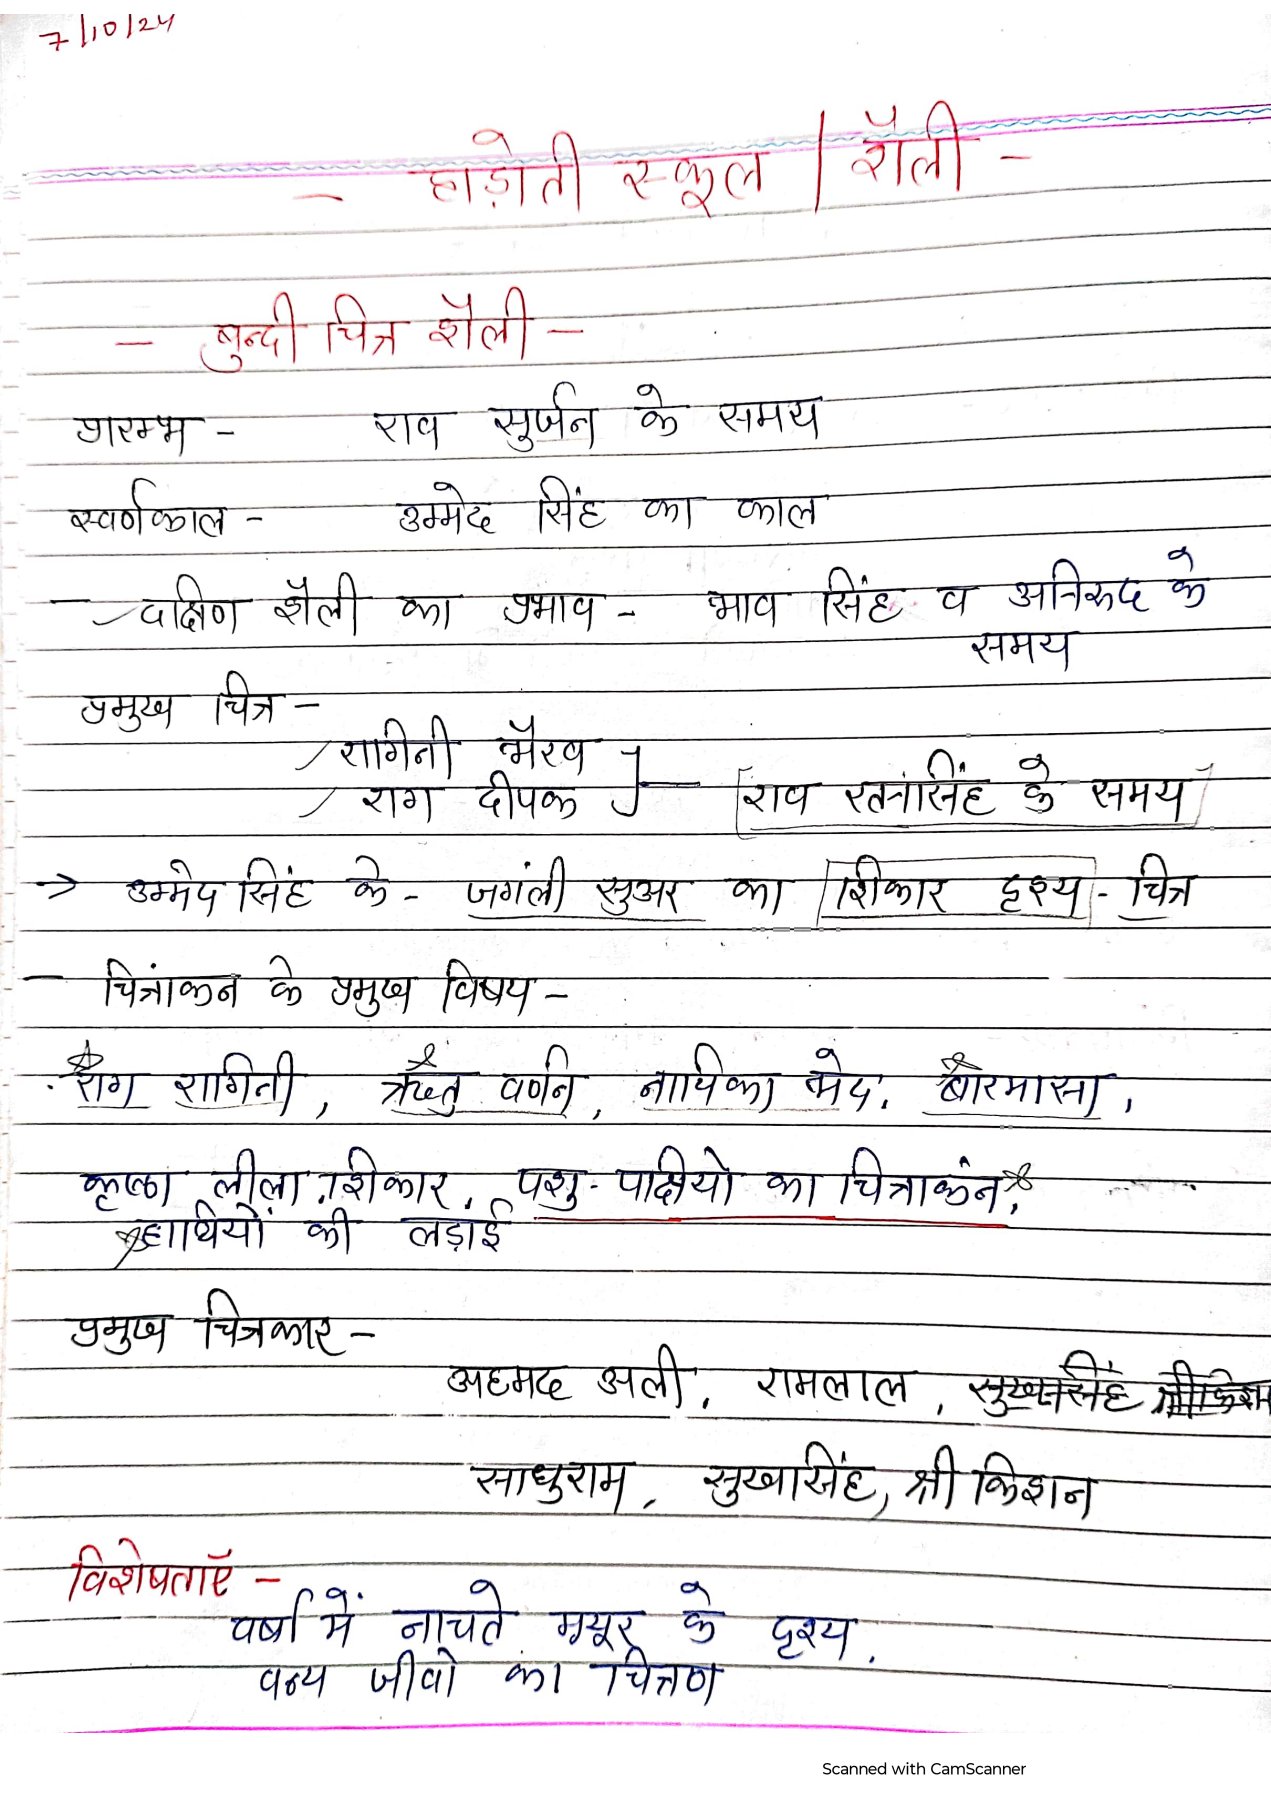 7/10/24
- हाड़ोती स्कूल / शैली -
- बुन्दी चित्र शैली -
प्रारम्भ - राव सुर्जन के समय
स्वर्णकाल - उम्मेद सिंह का काल
- दक्षिण शैली का प्रभाव - भाव सिंह व अनिरुद के
समय
प्रमुख चित्र -
रागिनी भैरव
राग दीपक ]— राव रतनसिंह के समय
→ उम्मेद सिंह के - जगंली सुअर का शिकार दृश्य - चित्र
- चित्रांकन के प्रमुख विषय -
राग रागिनी, ऋतु वर्णन, नायिका भेद, बारमासा,
कृष्ण लीला, शिकार, पशु-पक्षियो का चित्राकंन,
हाथियों की लड़ाई
प्रमुख चित्रकार -
अहमद अली, रामलाल, सुखसिंह श्री किशन
साधुराम, सुखासिंह, श्री किशन
विशेषताएँ -
वर्षा में नाचते मयूर के दृश्य,
वन्य जीवो का चित्रण
Scanned with CamScanner